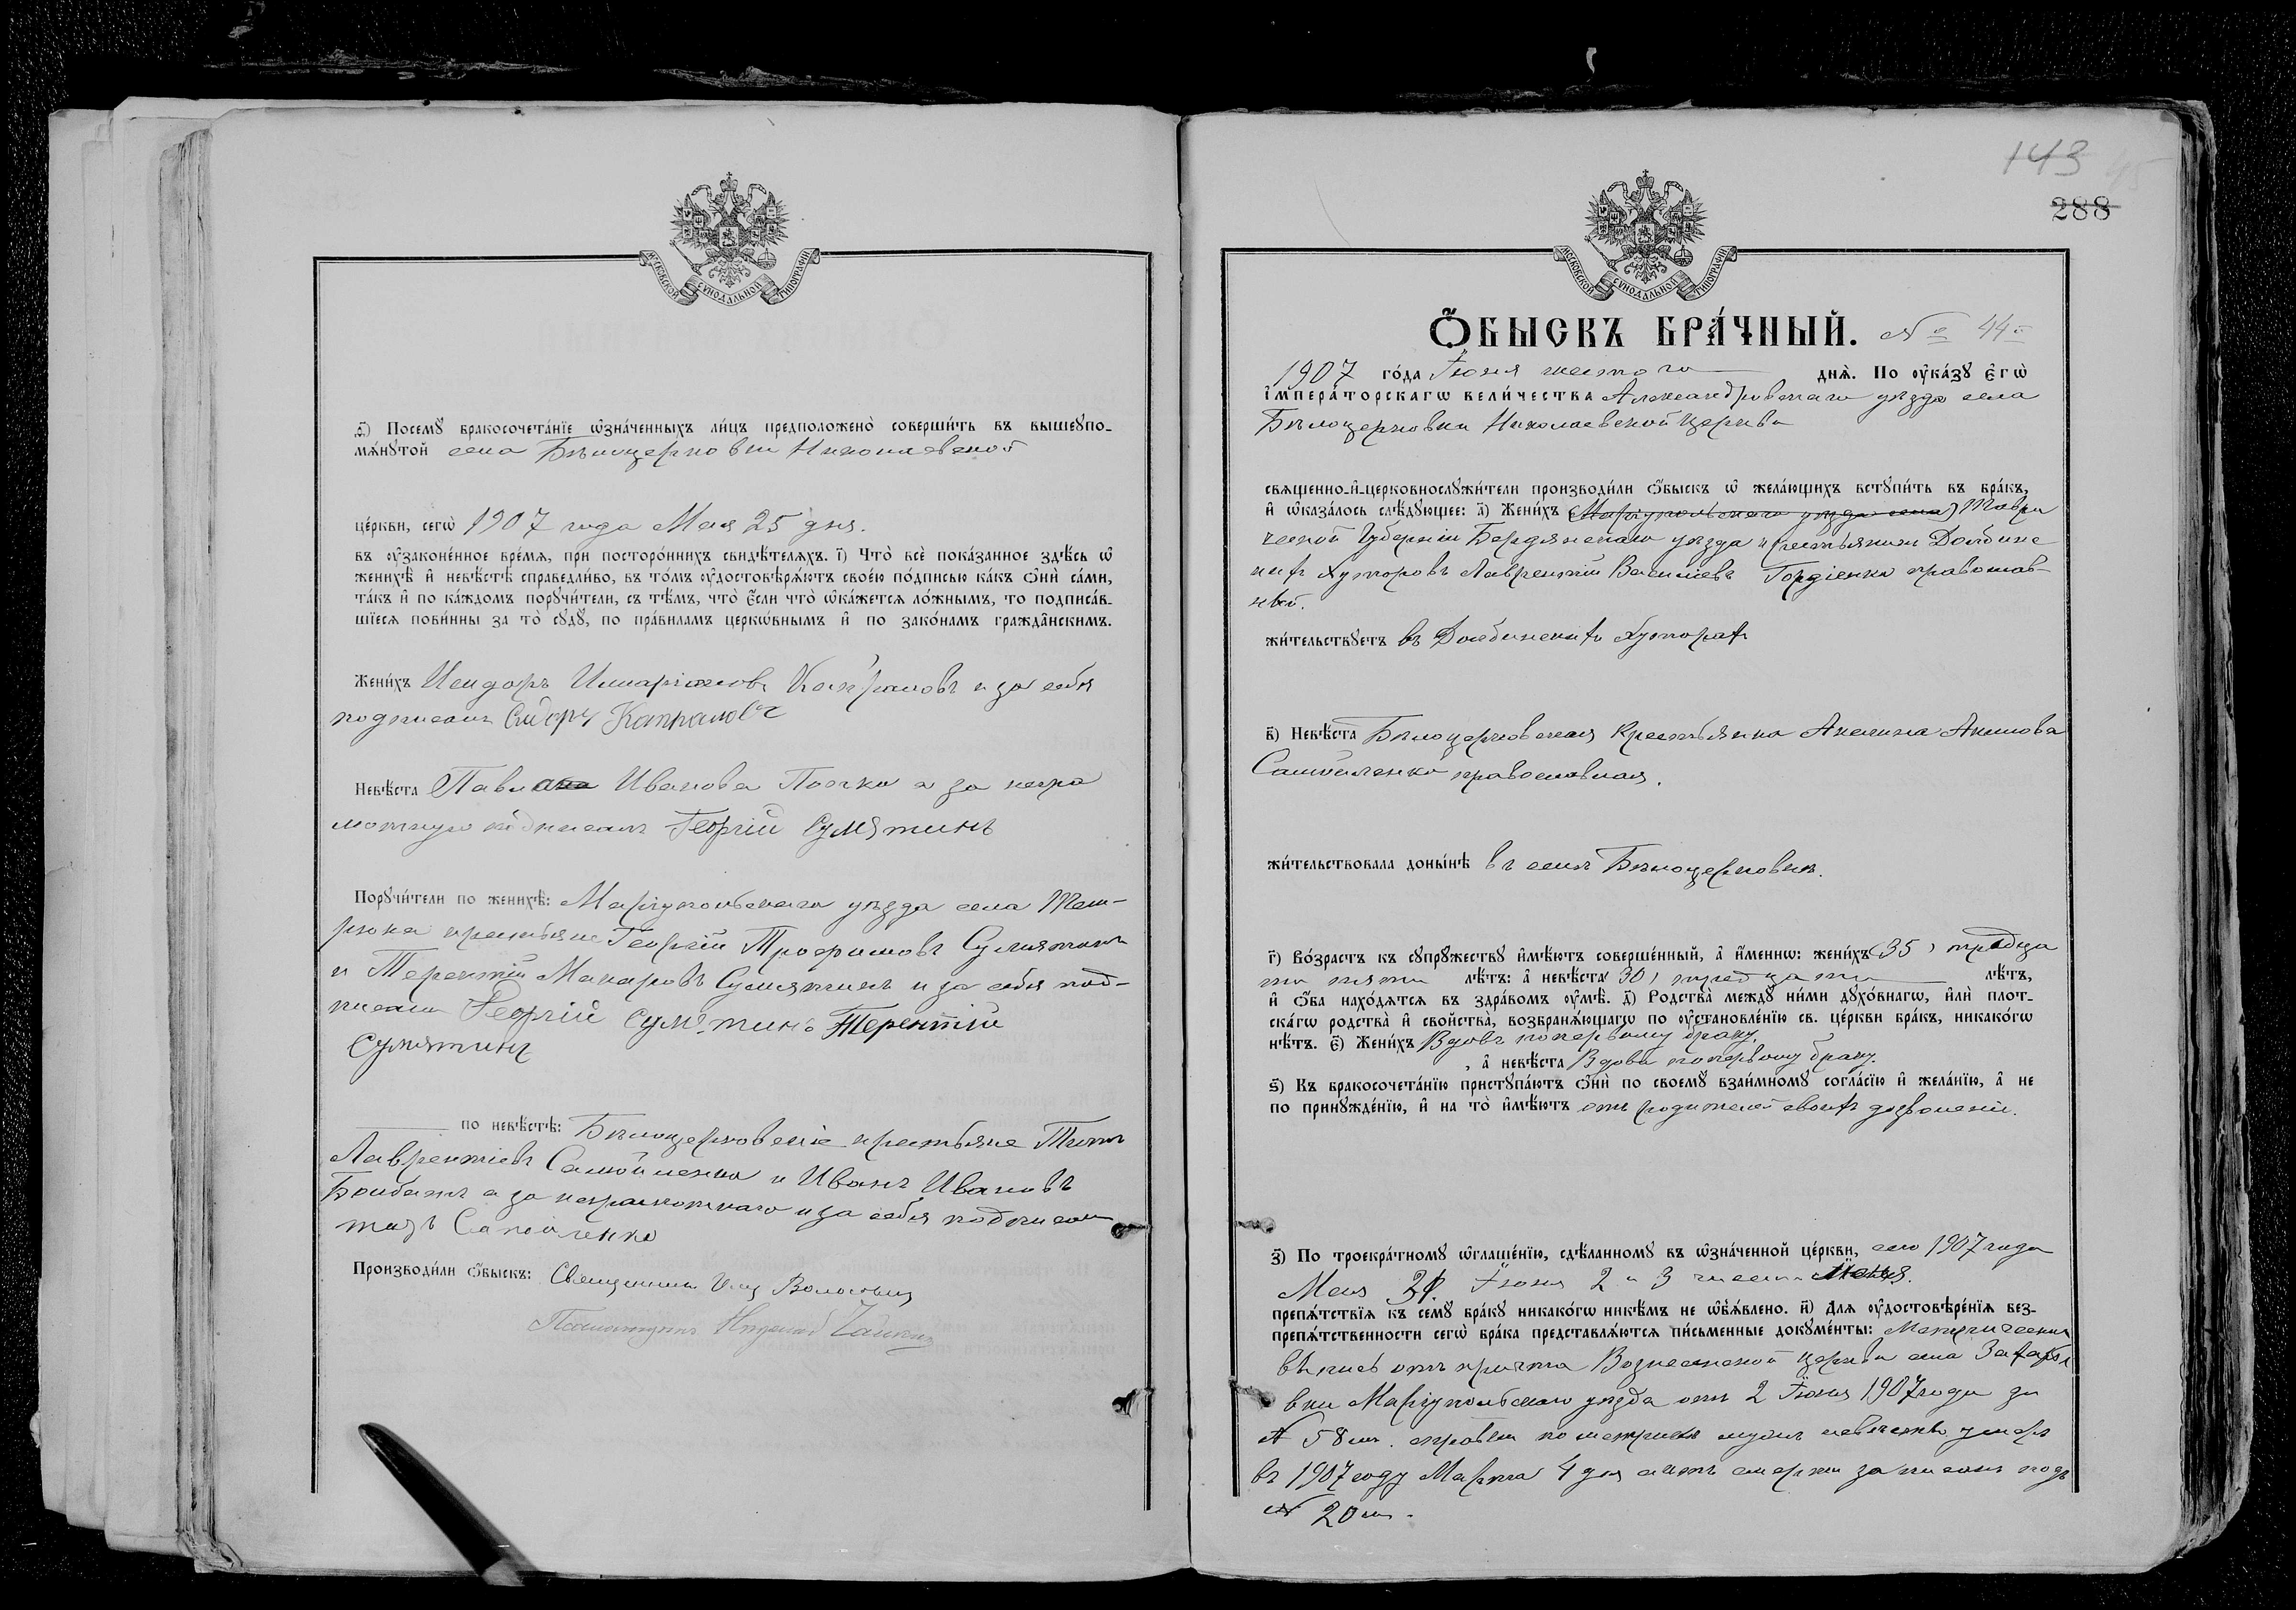 МОСКОВСКОЙ СѴНОДАЛЬНОЙ ТИПОГРАФІИ
Посемꙋ бракосочета́нїе ѡ҆зна́ченныхъ ли́цъ предположено̀ соверши́ть въ вышеꙋпо-
мѧ́нꙋтой села Бѣлоцерковки Николаевской
це́ркви, сегѡ̀ 1907 года Мая 25 дня.
въ ѹ҆законе́нное вре́мѧ, при посторо́ннихъ свидѣ́телѧхъ. і҃) Что̀ всѐ пока́занное здѣ́сь ѡ҆
женихѣ̀ и҆ невѣ́стѣ справедли́во, въ то́мъ ѹ҆достовѣрѧ́ютъ свое́ю по́дписью ка́къ ѻ҆нѝ са́ми,
та́къ и҆ по ка́ждомъ порꙋчи́тели, съ тѣ́мъ, что̀ є҆́сли что̀ ѡ҆ка́жетсѧ ло́жнымъ, то подписа́в-
шїесѧ пови́нны за то̀ сꙋдꙋ̀, по пра́виламъ церко́внымъ и҆ по зако́намъ гражда̑нскимъ.
Жени́хъ Исидоръ Илларіоновъ Капраловъ и за себя
подписалъ Сидоръ Капраловъ
Невѣ́ста Иванова а за негра
мотную подписалъ Георгій Сумятинъ
Порꙋчи́тели по женихѣ̀: Маріупольскаго уѣзда села Тем-
рюка крестьяне Георгій Трофимовъ Сумятинъ
и Терентій Макаровъ Сумятинъ и за себя под-
писали Георгій Сумятинъ Терентій
Сумятинъ
по невѣ́стѣ: Бѣлоцерковскіе крестьяне Титъ
Лаврентіевъ Самойленко и Иванъ Ивановъ
а за неграмотнаго и за себя подписалъ
Самойленко
Производи́ли ѻ҆́быскъ: Священникъ
Псаломщикъ
143
288
МОСКОВСКОЙ СѴНОДАЛЬНОЙ ТИПОГРАФІИ
Ѻ҆́БЫСКЪ БРА́ЧНЫЙ. № 44й
1907 го́да Іюня шестого днѧ̀. По ѹ҆ка́зꙋ є҆гѡ̀
і҆мпера́торскагѡ вели́чества Александровскаго уѣзда села
Бѣлоцерковки Николаевской церкви
свѧще́нно-и҆-церковнослꙋжи́тели производи́ли ѻ҆́быскъ ѡ҆ жела́ющихъ встꙋпи́ть въ бра́къ,
и҆ ѡ҆каза́лось слѣ́дꙋющее: а҃) Жени́хъ (Маріупольскаго уѣзда села) Таври
ческой Губерніи Бердянскаго уѣзда крестьянинъ Долбинс
кихъ Хуторовъ Лаврентій Васильевъ Гордіенко православ-
ный.
жи́тельствꙋетъ въ Долбинскихъ Хуторахъ
в҃) Невѣ́ста Бѣлоцерковская крестьянка Акилина Акимова
Самойленко православная.
жи́тельствовала доны́нѣ въ селѣ Бѣлоцерковкѣ.
г҃) Во́зрастъ къ сꙋпрꙋ́жествꙋ и҆мѣ́ютъ соверше́нный, а҆ и҆́меннѡ: жени́хъ (35) тридца
ти пяти лѣ́тъ: а҆ невѣ́ста (30) тридцати лѣ́тъ,
и҆ ѻ҆́ба нахо́дѧтсѧ въ здра́вомъ ѹ҆мѣ̀. д҃) Родства̀ междꙋ̀ ни́ми дꙋхо́внагѡ, и҆лѝ плот-
ска́гѡ родства̀ и҆ свойства̀, возбранѧ́ющагѡ по ѹ҆становле́нїю св. це́ркви бра́къ, никако́гѡ
нѣ́тъ. є҃) Жени́хъ Вдовъ по первому браку,
, а҆ невѣ́ста Вдова по первому браку.
ѕ҃) Къ бракосочета́нїю пристꙋпа́ютъ ѻ҆нѝ по своемꙋ̀ взаи́мномꙋ согла́сїю и҆ жела́нїю, а҆ не
по принꙋжде́нїю, и҆ на то̀ и҆мѣ́ютъ отъ родителей своихъ дозволеніе.
з҃) По троекра́тномꙋ ѡ҆глаше́нїю, сдѣ́ланномꙋ въ ѡ҆зна́ченной це́ркви, сего 1907 года
Мая Іюня 2 и 3 числа
препѧ́тствїѧ къ семꙋ̀ бра́кꙋ никако́гѡ никѣ́мъ не ѡ҆бъѧ́влено. и҃) Длѧ ѹ҆достовѣре́нїѧ без-
препѧ́тственности сегѡ̀ бра́ка представлѧ́ютсѧ пи́сьменные докꙋме́нты: Метрическая
выпись отъ причта Вознесенской церкви села
вки Маріупольскаго уѣзда отъ 2 Іюня 1907 года за
№ 58мъ. по метрикѣ мужъ невѣсты умеръ
въ 1907 году Марта 4 дня актъ смерти записанъ подъ
№ 20мъ.